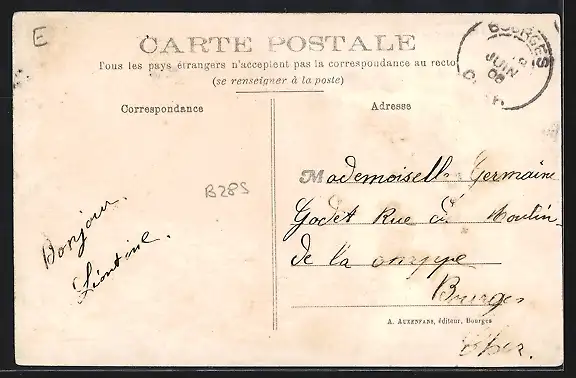 E
CARTE POSTALE
Tous les pays étrangers n'acceptent pas la correspondance au recto
(se renseigner à la poste)
BOURGES
JUIN
08
Correspondance
Adresse
Mademoiselle Germaine
Godet Rue du Moulin
de la
Bourges
Cher.
B285
Bonjour.
Léontine.
A. AUXENFANS, éditeur, Bourges